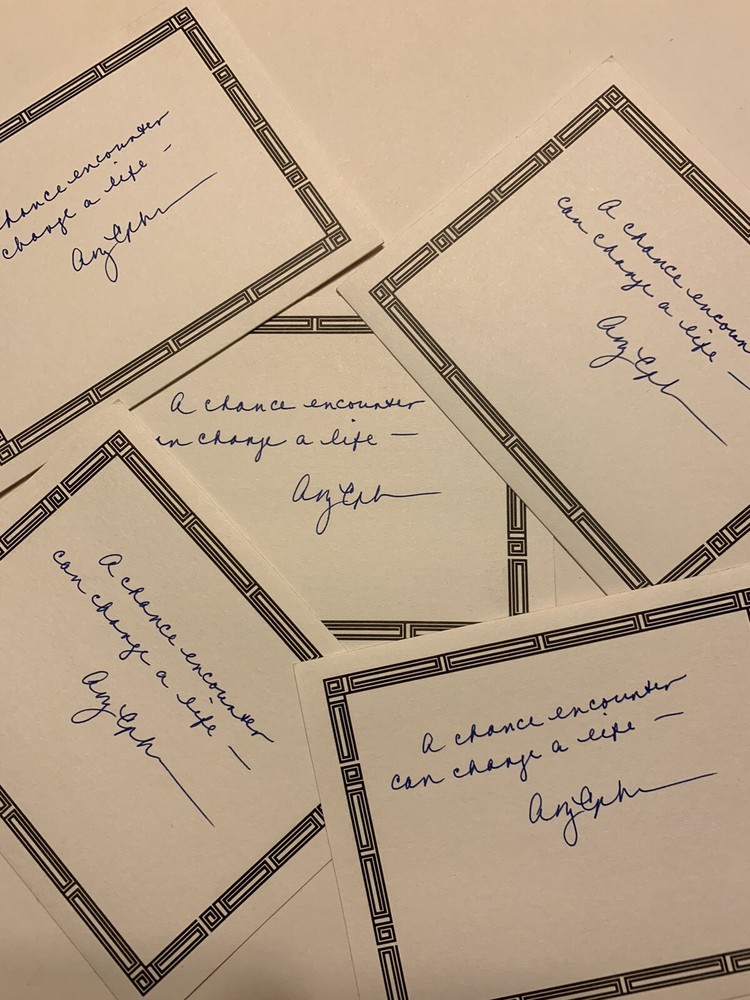 chance encounter
change a life –
Amy
A chance encoun
can change a life –
Amy
A chance encounter
change a life —
Amy
A chance encounter
can change a life —
Amy
A chance encounter
can change a life —
Amy